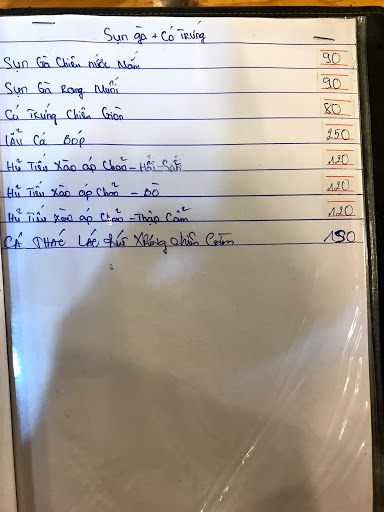 Sụn gà + Cá Trứng
Sụn Gà Chiên nước Mắm 90
Sụn Gà Rang Muối 90
Cá Trứng Chiên Giòn 80
Lẩu Cá Bóp 250
Hủ Tiếu Xào áp Chảo - Hải Sản 120
Hủ Tiếu Xào áp Chảo - Bò 120
Hủ Tiếu Xào áp Chảo - Thập Cẩm 120
CÁ THÁC LÁC rút Xương chiên 190